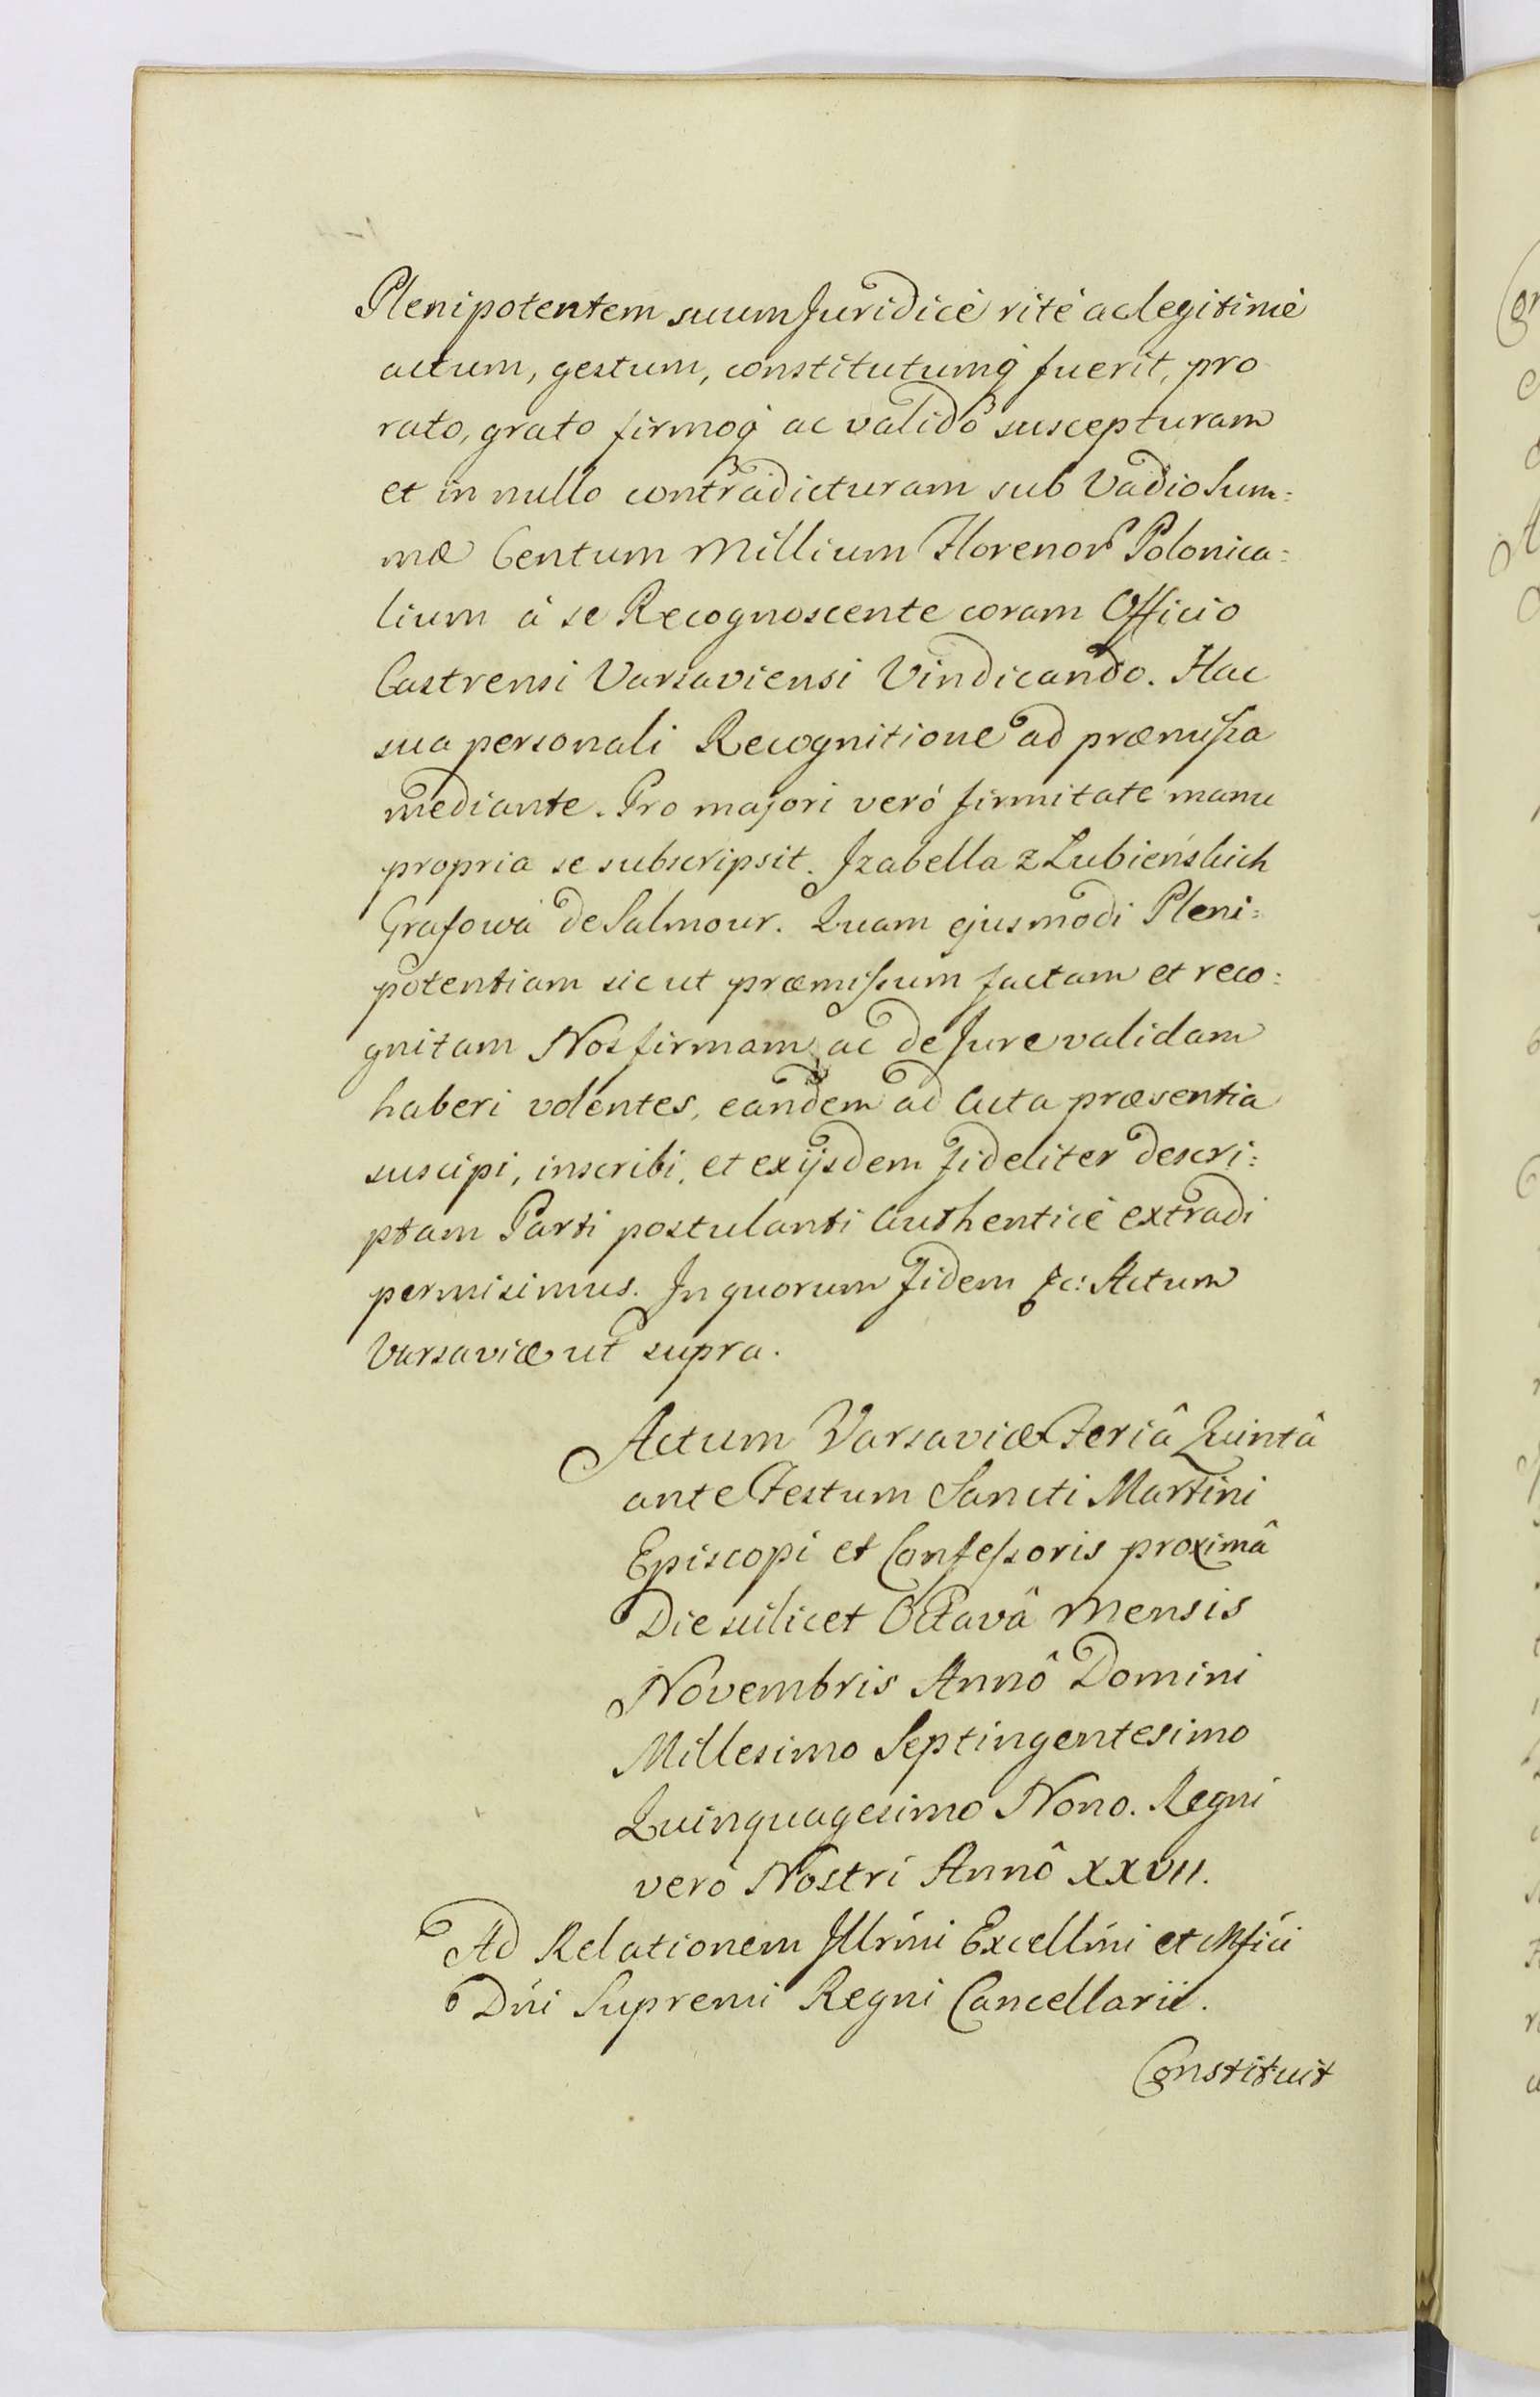 Plenipotentem suum Juridicè ritè ac legitimè
actum, gestum, constitutumq́ fuerit, pro
rato, grato firmoq́ ac validô suscepturam
et in nullo contradicturam sub Vadio Sum:
mæ Centum Millium Florenor Polonica:
lium à se Recognoscente coram Officio
Castrensi Varsaviensi Vindicando. Hac
sua personali Recognitione ad præmissa
mediante. Pro majori veró firmitate manu
propria se subscripsit. Izabella z Łubieńskich
Grafowa de Salmour. Quam ejusmodi Pleni:
potentiam sic ut præmissum factam et reco:
gnitam Nos firmam ac de Jure validam
haberi volentes, eandem ad Acta præsentia
suscipi, inscribi, et ex ijsdem fideliter descri:
ptam Parti postulanti Authenticè extradi
permisimus. In quorum fidem &c: Actum
Varsaviæ ut supra.
Actum Varsaviæ Feriâ Quintâ
ante Festum Sancti Martini
Episcopi et Confessoris proximâ
Die scilicet Octavâ Mensis
Novembris Annô Domini
Millesimo Septingentesimo
Quinquagesimo Nono. Regni
verò Nostri Annô XXVII.
Ad Relationem Illrm̃i Excellm̃i et Mfici
Dńi Supremi Regni Cancellarii.
Constituit